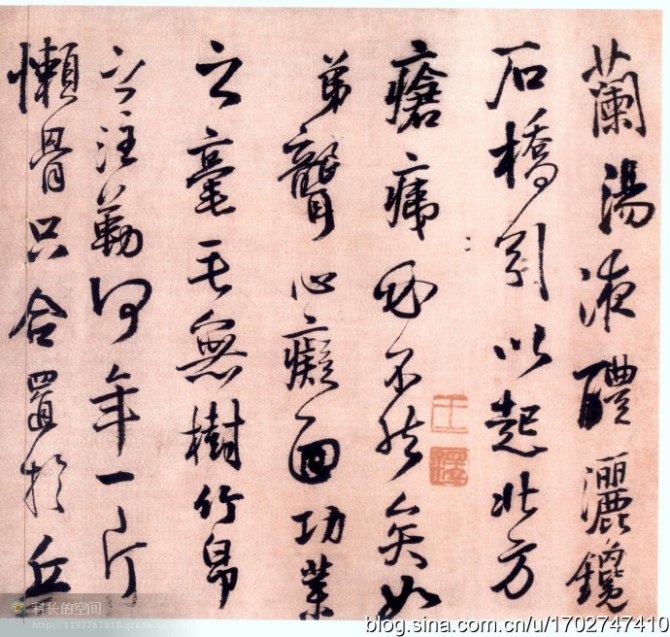 蘭湯液醴灑鑱
石橋引以起北方
瘡不然矣如
弟聾心癡面功業
之毫毛無樹竹帛
之注勒何年一片
懶骨只合置於丘
王
科长的空间
blog.sina.com.cn/u/1702747410